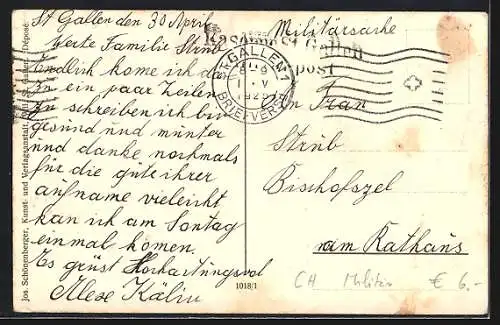 St Gallen den 30 April
Werte Familie Strub
Endlich kome ich da
zu ein paar Zeilen
zu schreiben ich bin
gsund und munter
und danke nochmals
für die gute ihrer
aufname vieleicht
kan ich am Sontag
einmal komen.
Es grüst Hochachtungsvol
Alexe Kälin
Militärsache
Kaserne St. Gallen
post
ST. GALLEN 1
BRIEFVERS
An Frau
Strub
Bischofszel
am Rathaus
CH Militär € 6.-
1018/1
Jos. Schönenberger, Kunst- und Verlagsanstalt, Déposé